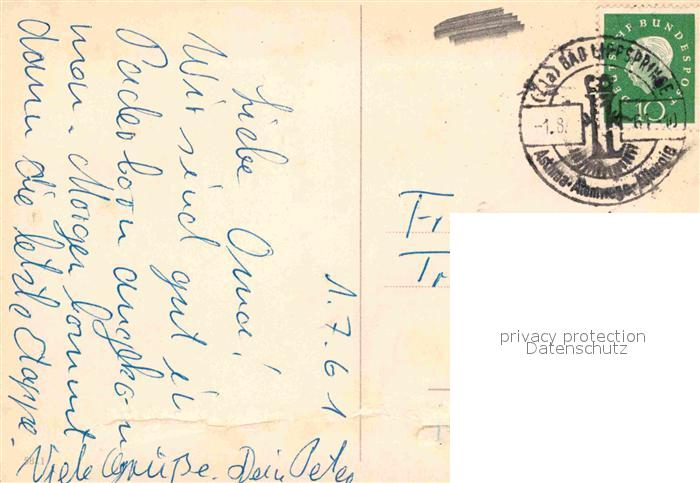 1.7.61
Liebe Oma!
Wir sind gut in
Paderborn angekom-
men. Morgen kommt
dann die letzte Etappe.
Viele Grüße. Dein Peter
Fr
Tr
(21a) BAD LIPPSPRINGE
-1.8. 61
Asthma-Atemwege-Allergie
DEUTSCHE BUNDESPOST
10
privacy protection
Datenschutz